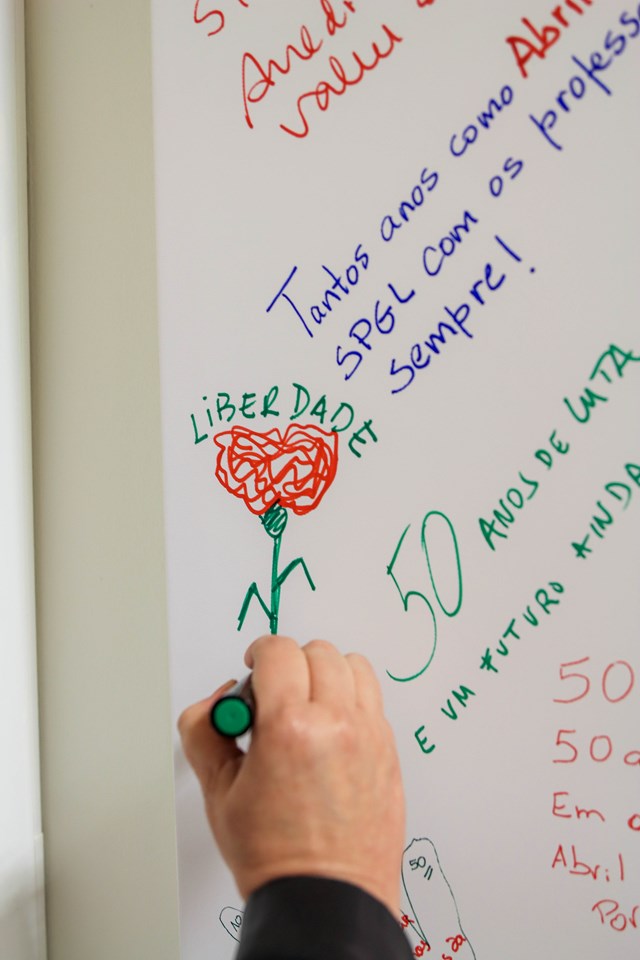 valeu
Tantos anos como Abril
SPGL com os professo
sempre!
LiBERDADE
50 ANOS DE LUTA
E UM FUTURO AINDA
50
50 a
Em
Abril
Por
50